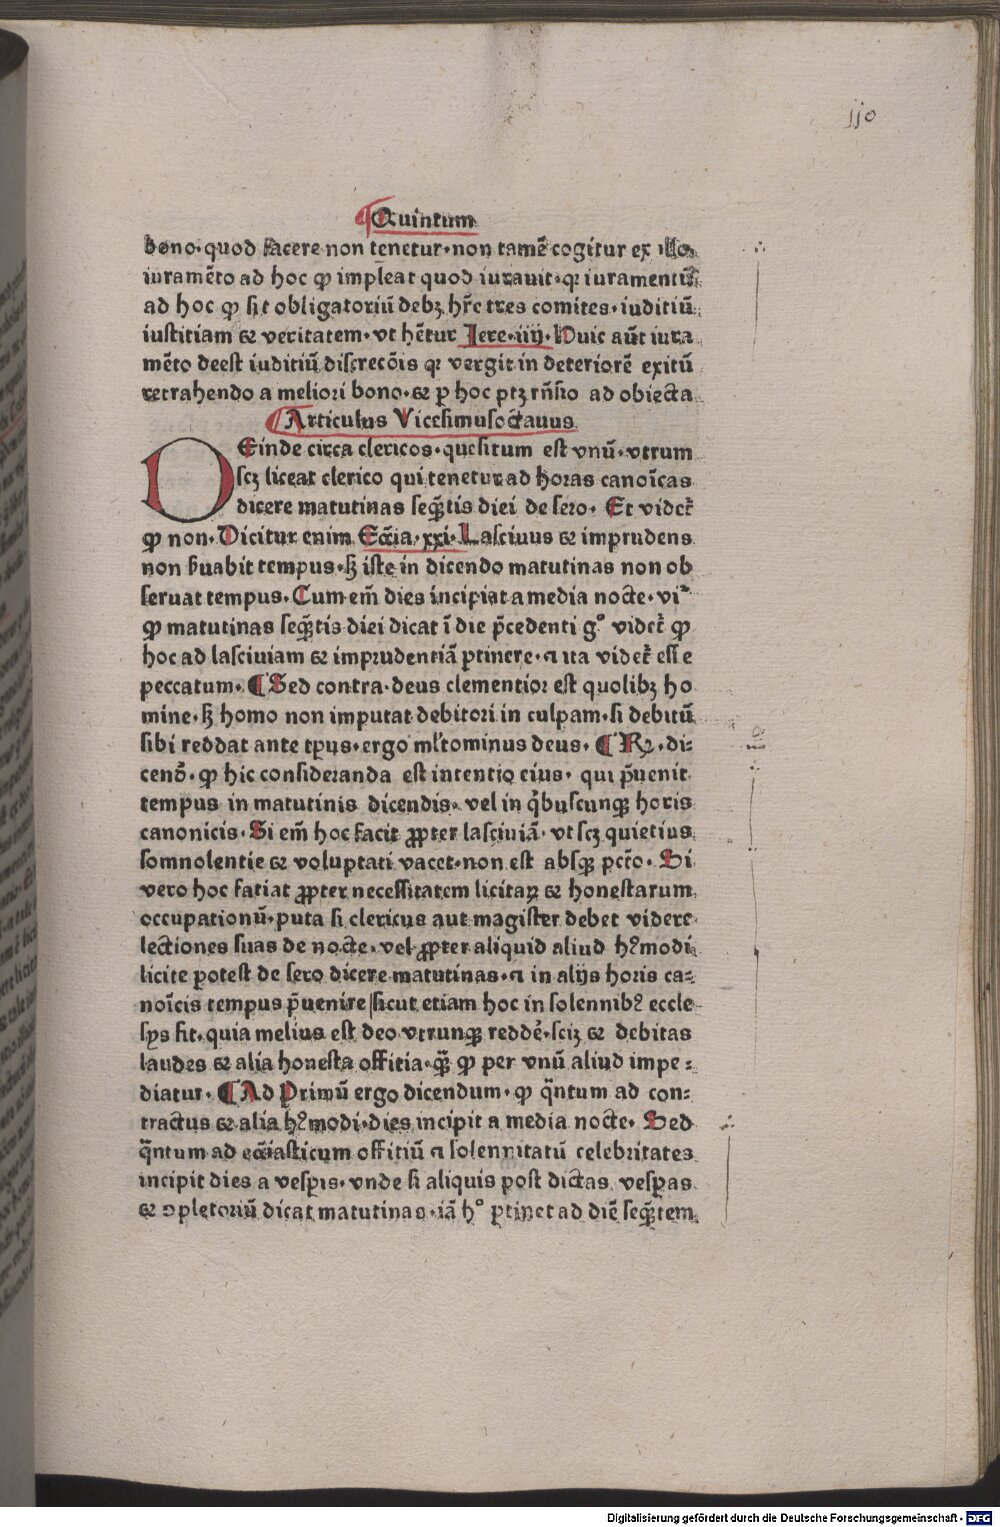 110
¶ Quintum
bono· quod facere non tenetur· non tamē cogitur ex illo
iuramēto ad hoc ꝙ impleat quod iurauit· qꝛ iuramentū
ad hoc ꝙ sit obligatoriū debꝫ hr̄e tres comites· iuditiū
iustitiam ⁊ veritatem· vt hētur Jere· iiij· Huic aūt iura
mēto deest iuditiū discrecōis qꝛ vergit in deteriorē exitū
retrahendo a meliori bono· ⁊ p hoc ptꝫ rn̄sio ad obiecta
¶ Articulus Vicesimusoctauus
DEinde circa clericos· quesitum est vnū· vtrum
scꝫ liceat clerico qui tenetur ad horas canoīcas
dicere matutinas seq̄ꝫtis diei de sero· Et videt̄
ꝙ non· Dicitur enim Ecc̄ia· xxi· Lasciuus ⁊ imprudens
non ẜuabit tempus· sꝫ iste in dicendo matutinas non ob
seruat tempus· Cum em̄ dies incipiat a media nocte· vr̄
ꝙ matutinas seq̄ꝫtis diei dicat ī die p̄cedenti gͦ videt̄ ꝙ
hoc ad lasciuiam ⁊ imprudentiā ptinere· ⁊ ita videt̄ esse
peccatum· ¶ Sed contra· deus clementior est quolibꝫ ho
mine· sꝫ homo non imputat debitori in culpam· si debitū
sibi reddat ante tp̄us· ergo ml̄tominus deus· ¶ Rꝫ· di⸗
cend̄· ꝙ hic consideranda est intentio eius· qui p̄uenit
tempus in matutinis dicendis· vel in q̇buscunqꝫ horis
canonicis· Si em̄ hoc facit ꝓpter lasciuiā· vt scꝫ quietius
somnolentie ⁊ voluptati vacet· non est absqꝫ pctō· Si
vero hoc fatiat ꝓpter necessitatem licitaꝝ ⁊ honestarum
occupationū· puta si clericus aut magister debet videre
lectiones suas de nocte· vel ꝓpter aliquid aliud hꝰmodi
licite potest de sero dicere matutinas· ⁊ in alijs horis ca⸗
noīcis tempus p̄uenire sicut etiam hoc in solennibꝰ eccle
sijs fit· quia melius est deo vtrunqꝫ redde᷒· sciꝫ ⁊ debitas
laudes ⁊ alia honesta offitia· qꝫ̄ ꝙ per vnū aliud impe⸗
diatur· ¶ Ad Primū ergo dicendum· ꝙ q̄ntum ad con⸗
tractus ⁊ alia hꝰmodi· dies incipit a media nocte· Sed
q̄ntum ad ecc̄iasticum offitiū ⁊ solennitatū celebritates
incipit dies a vespis· vnde si aliquis post dictas vespas
⁊ ꝯpletoriū dicat matutinas· iā hͦ ptinet ad diē seq̄ꝫtem
Digitalisierung gefördert durch die Deutsche Forschungsgemeinschaft - DFG